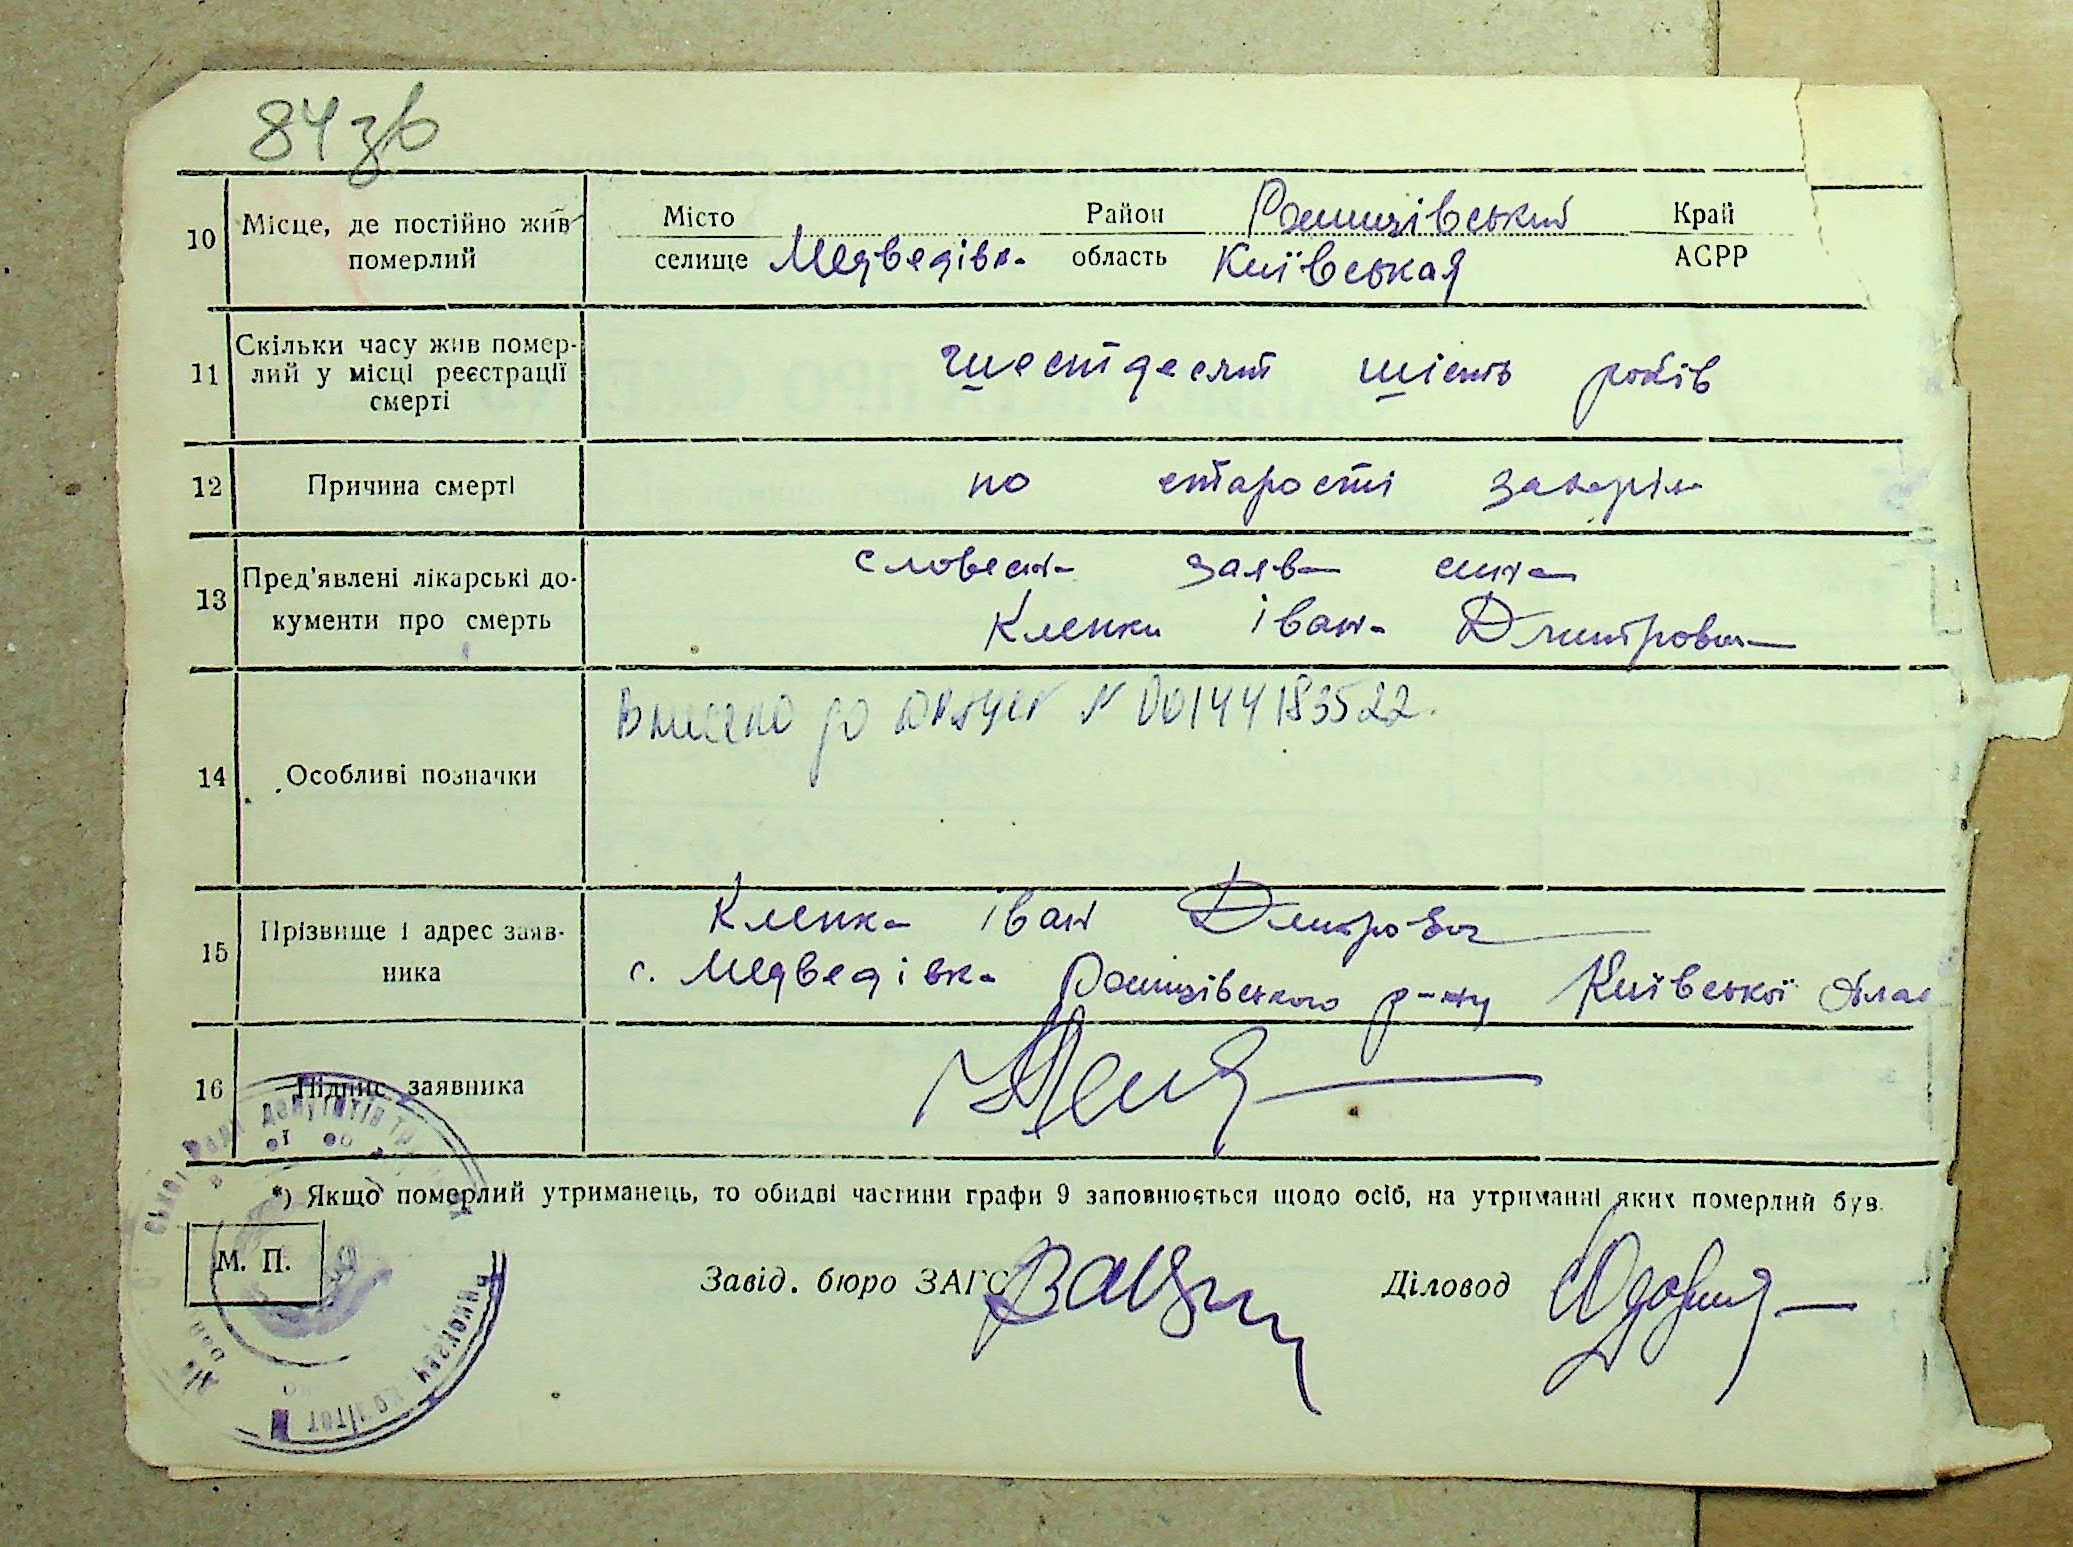 84 зв
10 Місце, де постійно жив померлий
Місто Район Край
селище Медведівка область Київськая АСРР
11 Скільки часу жив помер-
лий у місці реєстрації
смерті
шестдесят шість років
12 Причина смерті
по старості
13 Пред'явлені лікарські до-
кументи про смерть
словесна заява сина
Кленки Івана Дмитрович
14 Особливі позначки
Внесено до ДРАЦСГ № 00144183522.
15 Прізвище і адрес заяв-
ника
Кленка Іван Дмитрович
с. Медведівка р-ну Київської облас
16 Підпис заявника
*) Якщо померлий утриманець, то обидві частини графи 9 заповнюється щодо осіб, на утриманні яких померлий був.
М. П.
Завід. бюро ЗАГС Діловод